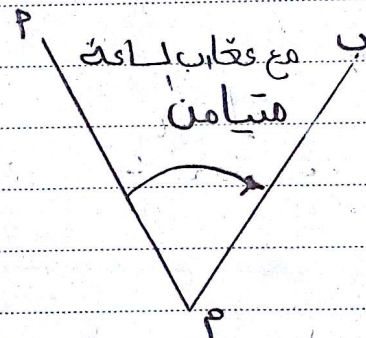 أ
ب
مع عقارب الساعة
متيامن
م